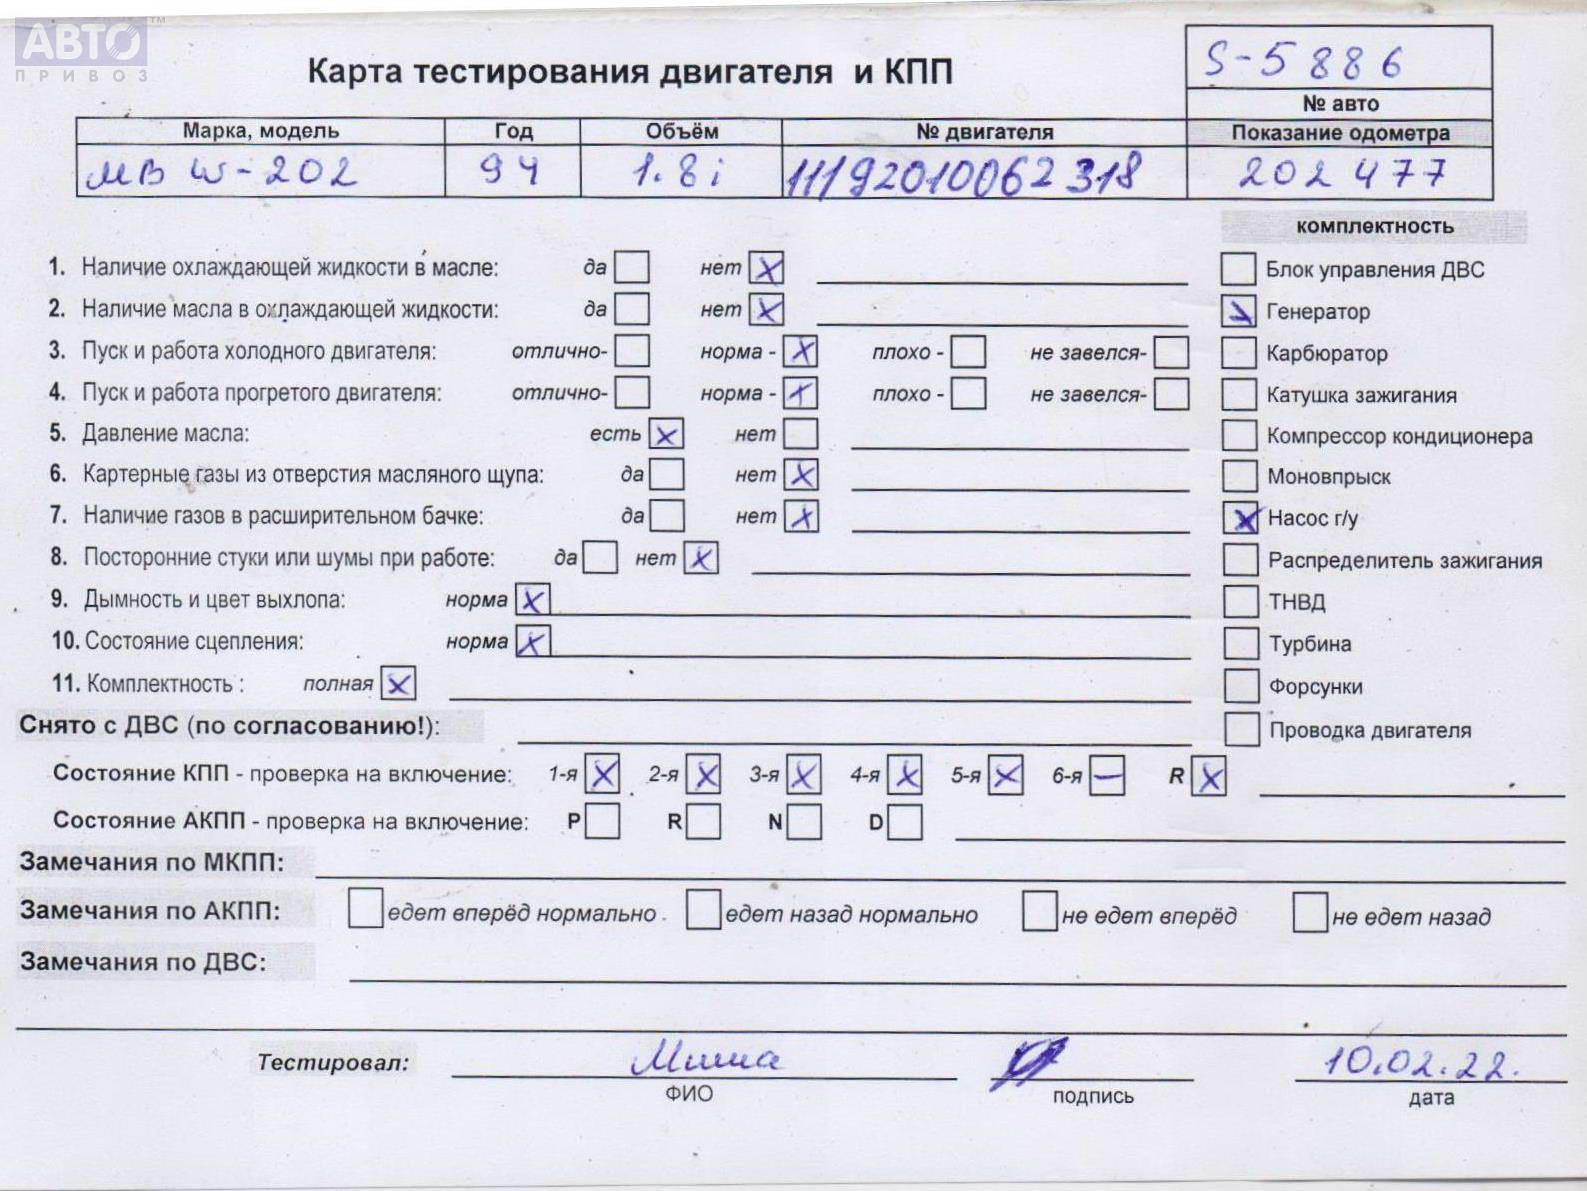 АВТО™
ПРИВОЗ
Карта тестирования двигателя и КПП
S-5886
№ авто
Марка, модель Год Объём № двигателя Показание одометра
МВ W-202 94 1.8i 11192010062318 202 477
комплектность
1. Наличие охлаждающей жидкости в масле: да нет X Блок управления ДВС
2. Наличие масла в охлаждающей жидкости: да нет X Генератор
3. Пуск и работа холодного двигателя: отлично- норма - X плохо - не завелся- Карбюратор
4. Пуск и работа прогретого двигателя: отлично- норма - X плохо - не завелся- Катушка зажигания
5. Давление масла: есть X нет Компрессор кондиционера
6. Картерные газы из отверстия масляного щупа: да нет X Моновпрыск
7. Наличие газов в расширительном бачке: да нет X X Насос г/у
8. Посторонние стуки или шумы при работе: да нет X Распределитель зажигания
9. Дымность и цвет выхлопа: норма X ТНВД
10. Состояние сцепления: норма X Турбина
11. Комплектность : полная X Форсунки
Снято с ДВС (по согласованию!): Проводка двигателя
Состояние КПП - проверка на включение: 1-я X 2-я X 3-я X 4-я X 5-я X 6-я — R X
Состояние АКПП - проверка на включение: P R N D
Замечания по МКПП:
Замечания по АКПП: едет вперёд нормально едет назад нормально не едет вперёд не едет назад
Замечания по ДВС:
Тестировал: Миша 10.02.22.
ФИО подпись дата